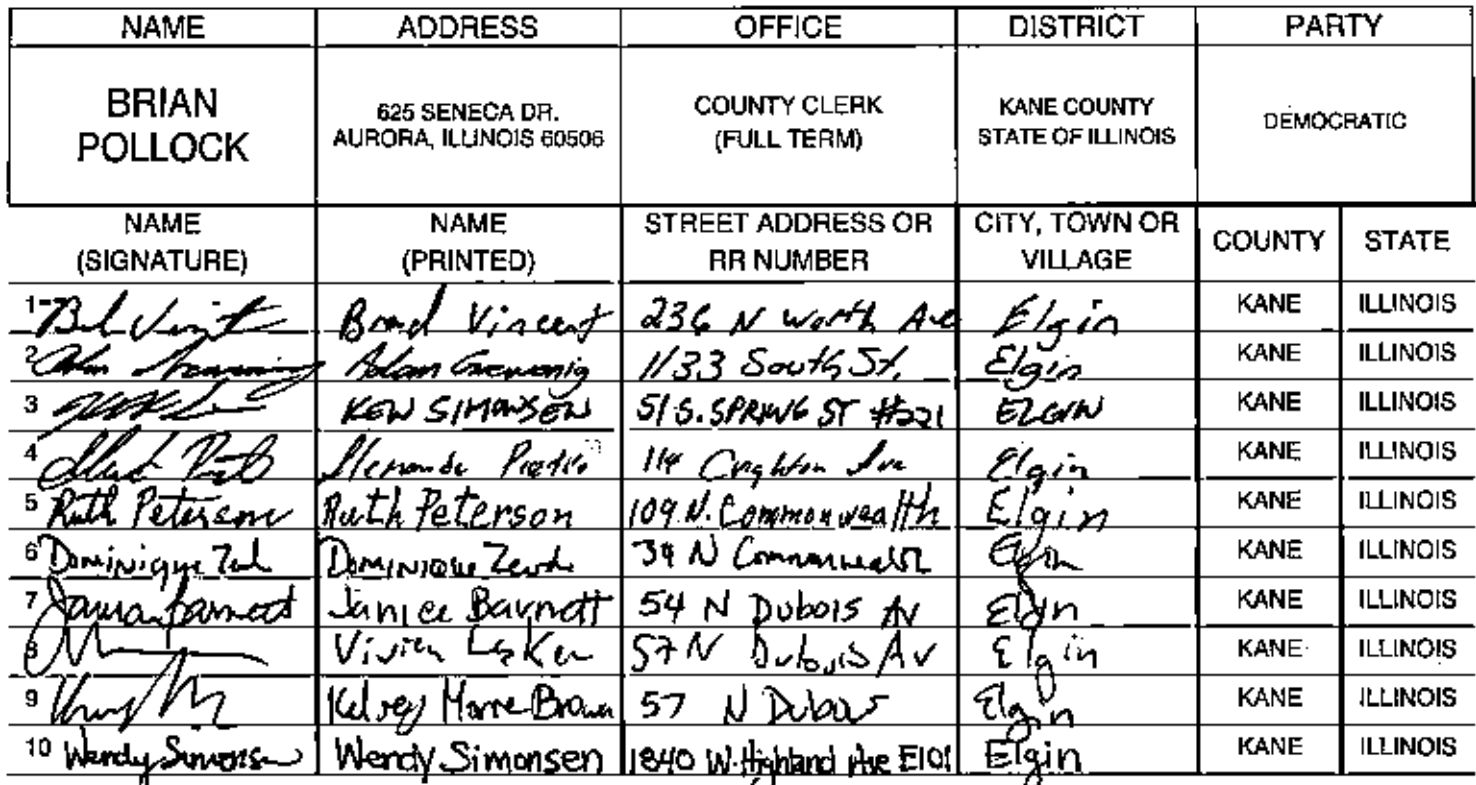 NAME ADDRESS OFFICE DISTRICT PARTY
BRIAN POLLOCK 625 SENECA DR. AURORA, ILLINOIS 60506 COUNTY CLERK (FULL TERM) KANE COUNTY STATE OF ILLINOIS DEMOCRATIC
NAME (SIGNATURE) NAME (PRINTED) STREET ADDRESS OR RR NUMBER CITY, TOWN OR VILLAGE COUNTY STATE
1 Brad Vincent 236 N Worth Ave Elgin KANE ILLINOIS
2 Adam 1133 South St. Elgin KANE ILLINOIS
3 KEN SIMONSEN 51 S. SPRING ST #221 ELGIN KANE ILLINOIS
4 114 Elgin KANE ILLINOIS
5 Ruth Peterson Ruth Peterson 109 N. Commonwealth Elgin KANE ILLINOIS
6 Dominique Dominique 39 N Commonwealth Elgin KANE ILLINOIS
7 Janice Barnett 54 N Dubois Av Elgin KANE ILLINOIS
8 57 N Dubois Av Elgin KANE ILLINOIS
9 Kelsey 57 N Dubois Elgin KANE ILLINOIS
10 Wendy Simonsen Wendy Simonsen 1840 W. Highland Ave E101 Elgin KANE ILLINOIS